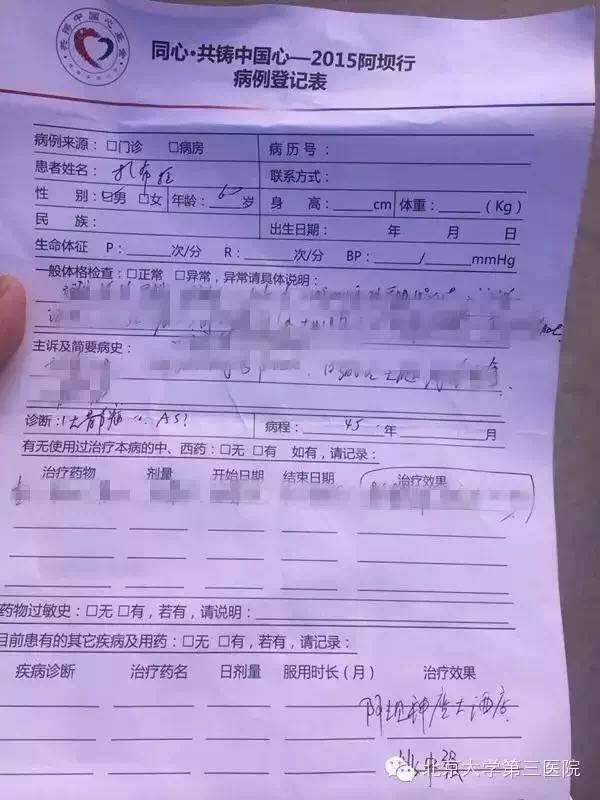 共铸中国心基金
同心·共铸中国心—2015阿坝行
病例登记表
病例来源：□门诊 □病房 病 历 号：
患者姓名： 联系方式：
性 别：☑男 □女 年龄： 6 岁 身 高：____cm 体重：____（Kg）
民 族： 出生日期： 年 月 日
生命体征 P：____次/分 R：____次/分 BP：____/____mmHg
一般体格检查：□正常 □异常，异常请具体说明：
主诉及简要病史：
诊断：1大骨节病 AS? 病程： 45 年 月
有无使用过治疗本病的中、西药：□无 □有 如有，请记录：
治疗药物 剂量 开始日期 结束日期 治疗效果
药物过敏史：□无 □有，若有，请说明：
目前患有的其它疾病及用药：□无 □有，若有，请记录：
疾病诊断 治疗药名 日剂量 服用时长（月） 治疗效果
阿坝神座大酒店
北京大学第三医院